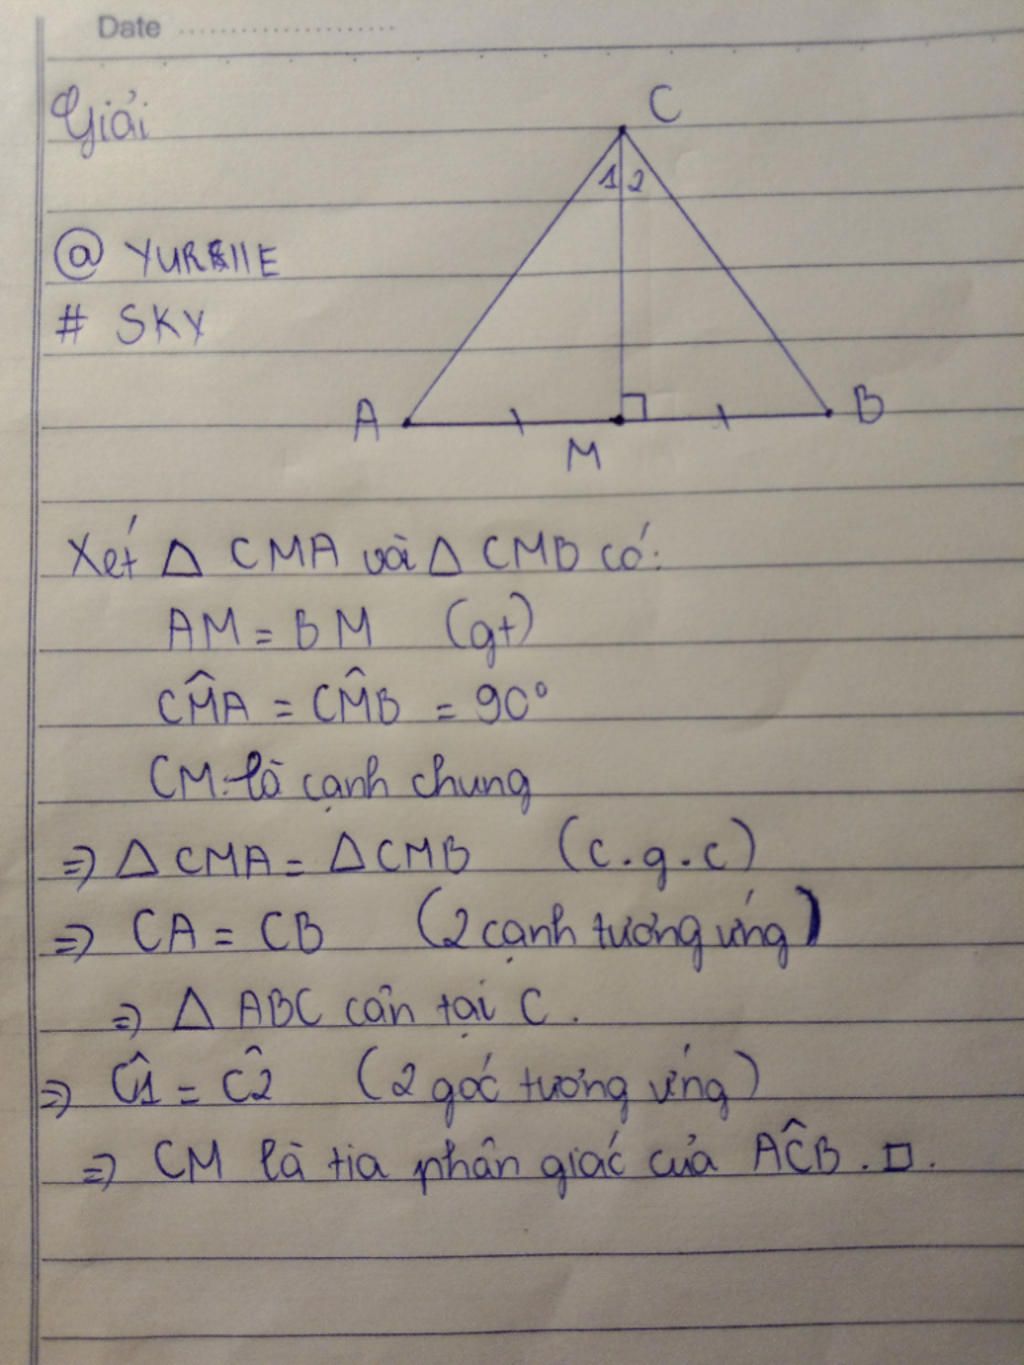 Date
Giải
C
1 2
@ YURIIE
# SKY
A
B
M
Xét △ CMA và △ CMB có:
AM = BM (gt)
CM̂A = CM̂B = 90°
CM: là cạnh chung
=> △ CMA = △ CMB (c.g.c)
=> CA = CB (2 cạnh tương ứng)
=> △ ABC cân tại C.
=> Ĉ1 = Ĉ2 (2 góc tương ứng)
=> CM là tia phân giác của AĈB. □.